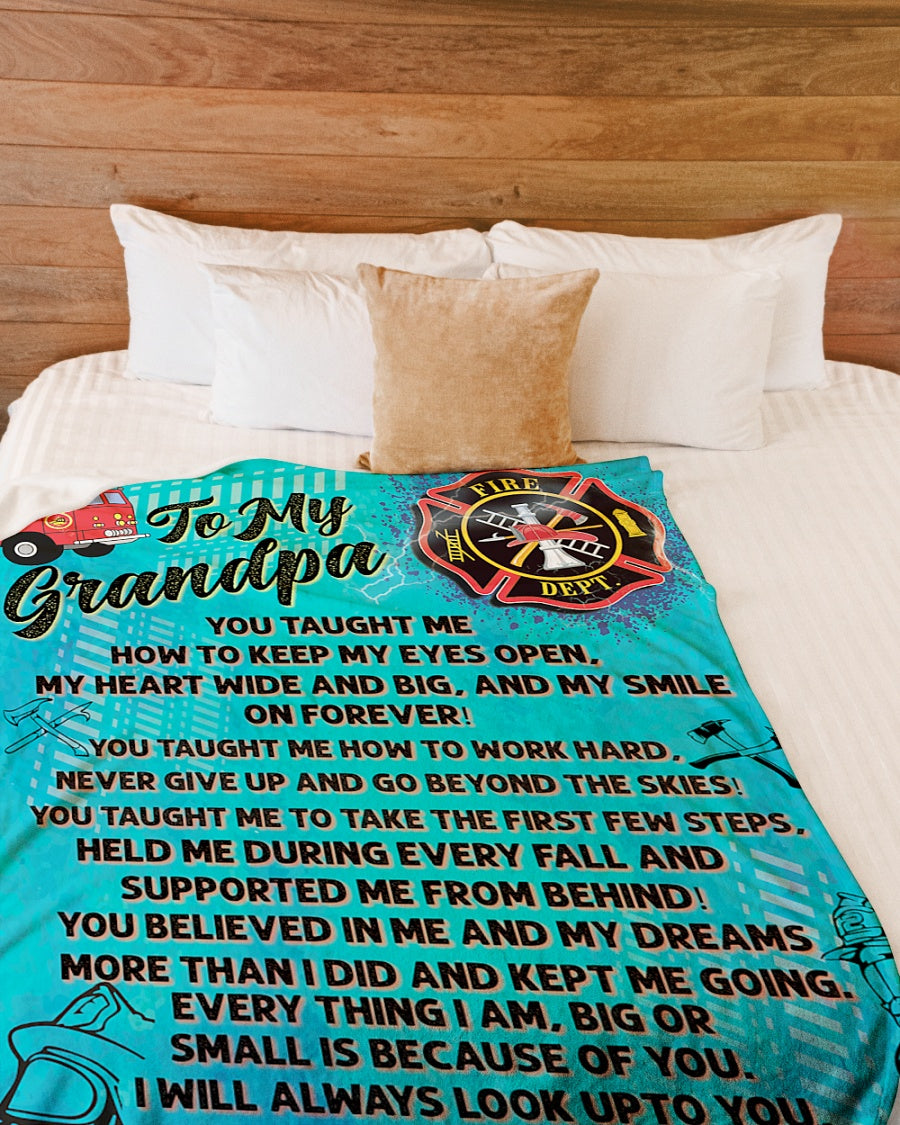 To My
Grandpa
FIRE
DEPT.
YOU TAUGHT ME
HOW TO KEEP MY EYES OPEN,
MY HEART WIDE AND BIG, AND MY SMILE
ON FOREVER!
YOU TAUGHT ME HOW TO WORK HARD,
NEVER GIVE UP AND GO BEYOND THE SKIES!
YOU TAUGHT ME TO TAKE THE FIRST FEW STEPS,
HELD ME DURING EVERY FALL AND
SUPPORTED ME FROM BEHIND!
YOU BELIEVED IN ME AND MY DREAMS
MORE THAN I DID AND KEPT ME GOING.
EVERY THING I AM, BIG OR
SMALL IS BECAUSE OF YOU.
I WILL ALWAYS LOOK UPTO YOU.